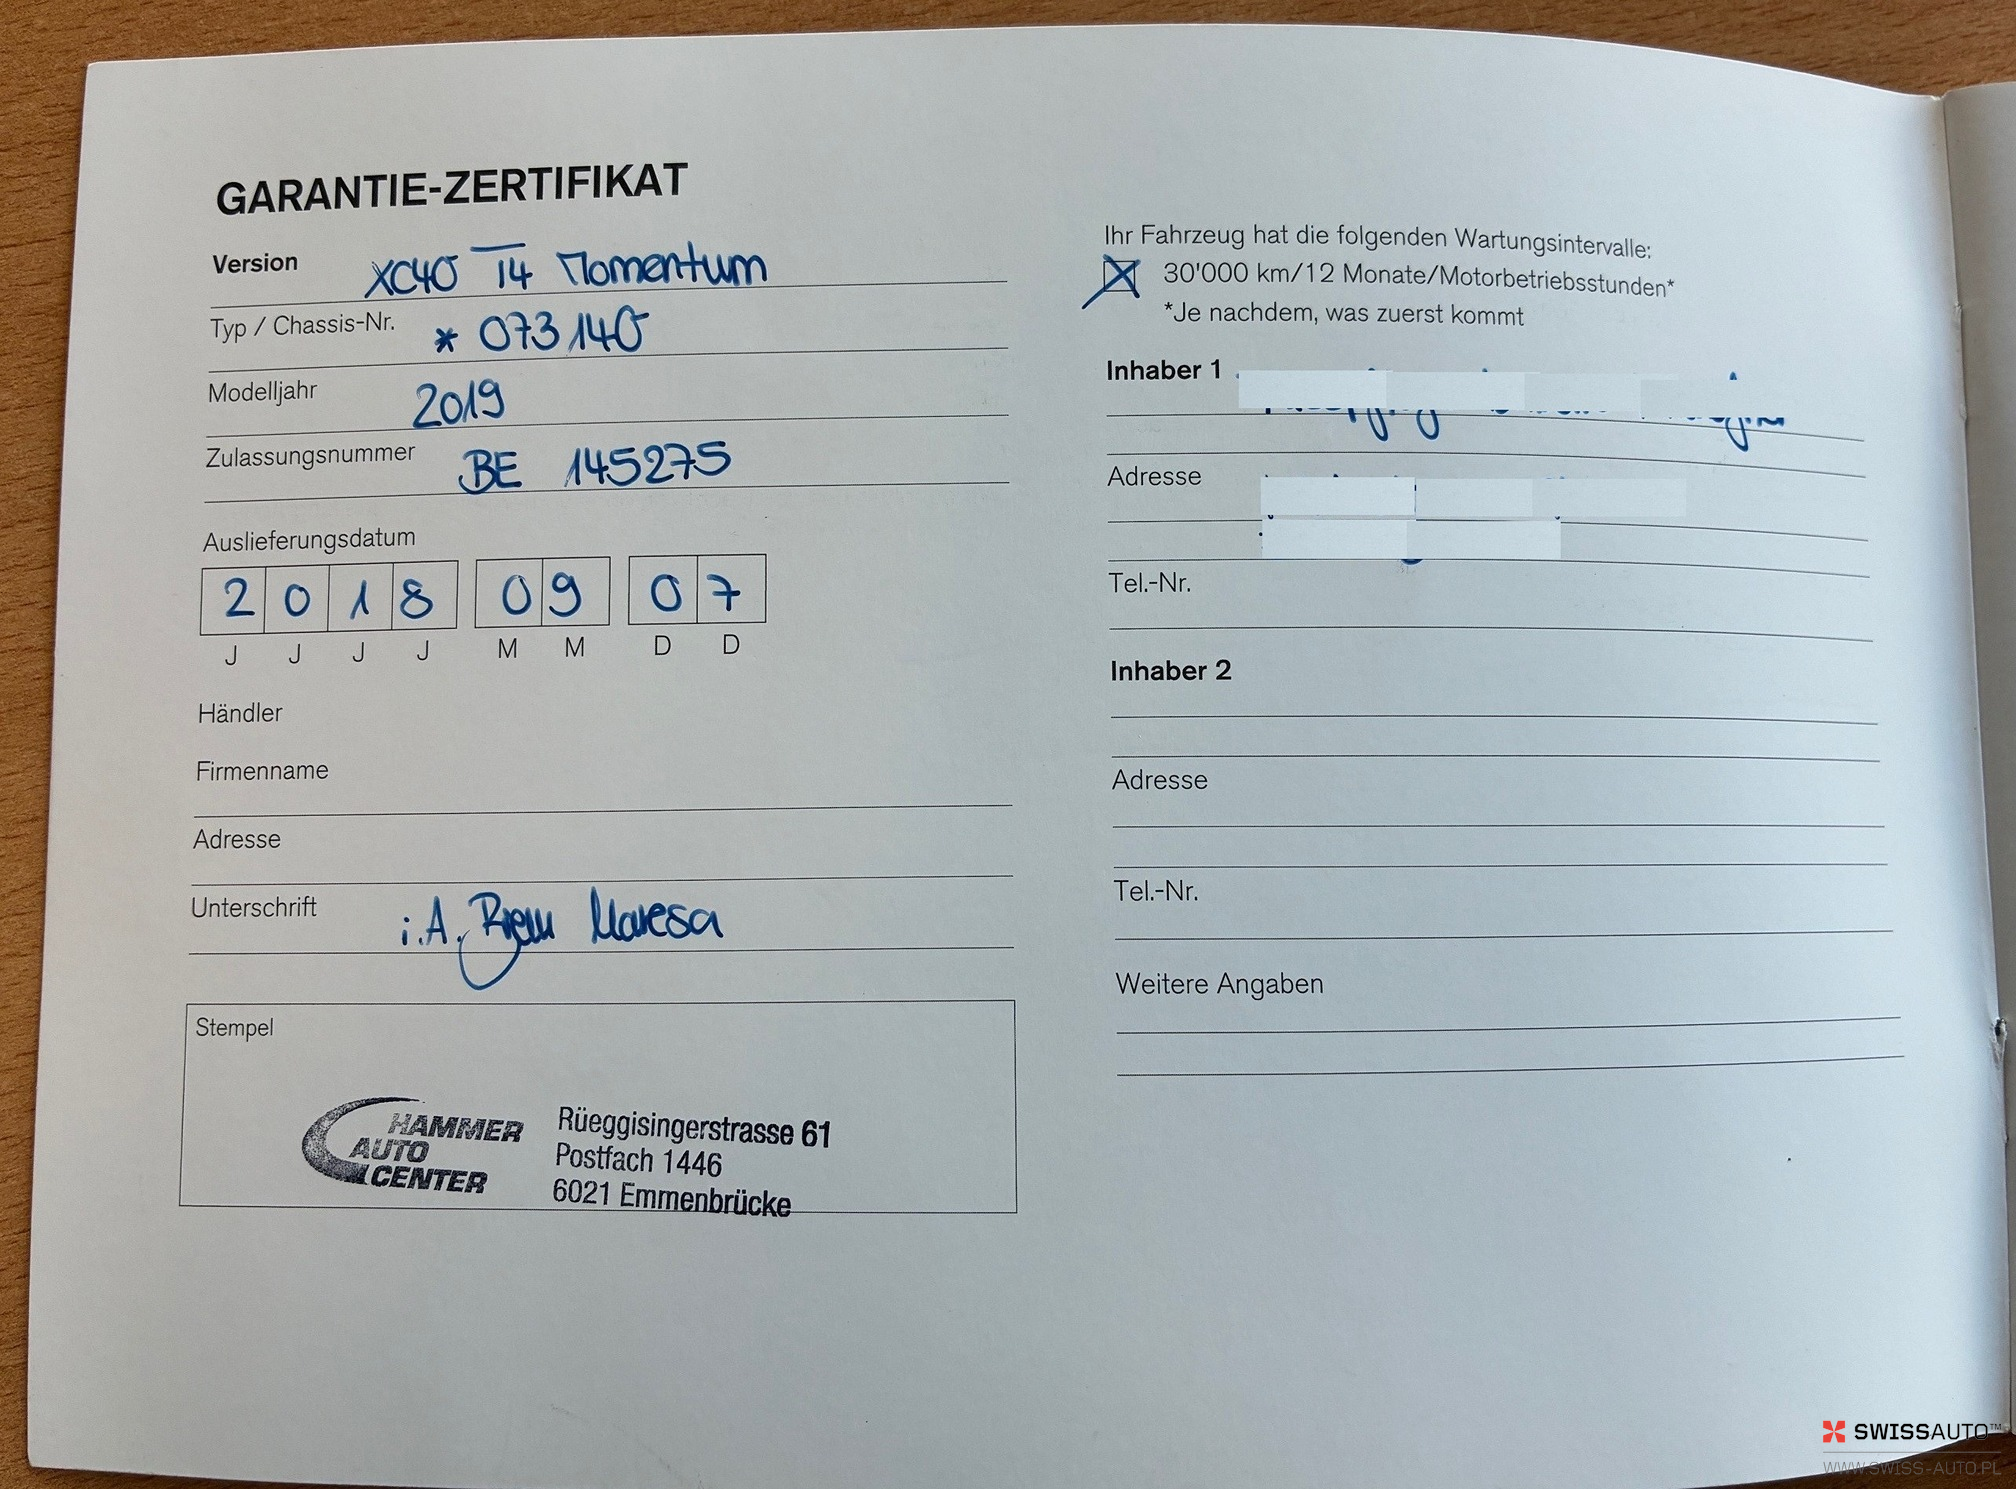 GARANTIE-ZERTIFIKAT
Version XC40 T4 Momentum
Typ / Chassis-Nr. * 073140
Modelljahr 2019
Zulassungsnummer BE 145275
Auslieferungsdatum
2 0 1 8 0 9 0 7
J J J J M M D D
Händler
Firmenname
Adresse
Unterschrift i.A.
Stempel
HAMMER
AUTO
CENTER
Rüeggisingerstrasse 61
Postfach 1446
6021 Emmenbrücke
Ihr Fahrzeug hat die folgenden Wartungsintervalle:
30'000 km/12 Monate/Motorbetriebsstunden*
*Je nachdem, was zuerst kommt
Inhaber 1
Adresse
Tel.-Nr.
Inhaber 2
Adresse
Tel.-Nr.
Weitere Angaben
SWISSAUTO™
WWW.SWISS-AUTO.PL